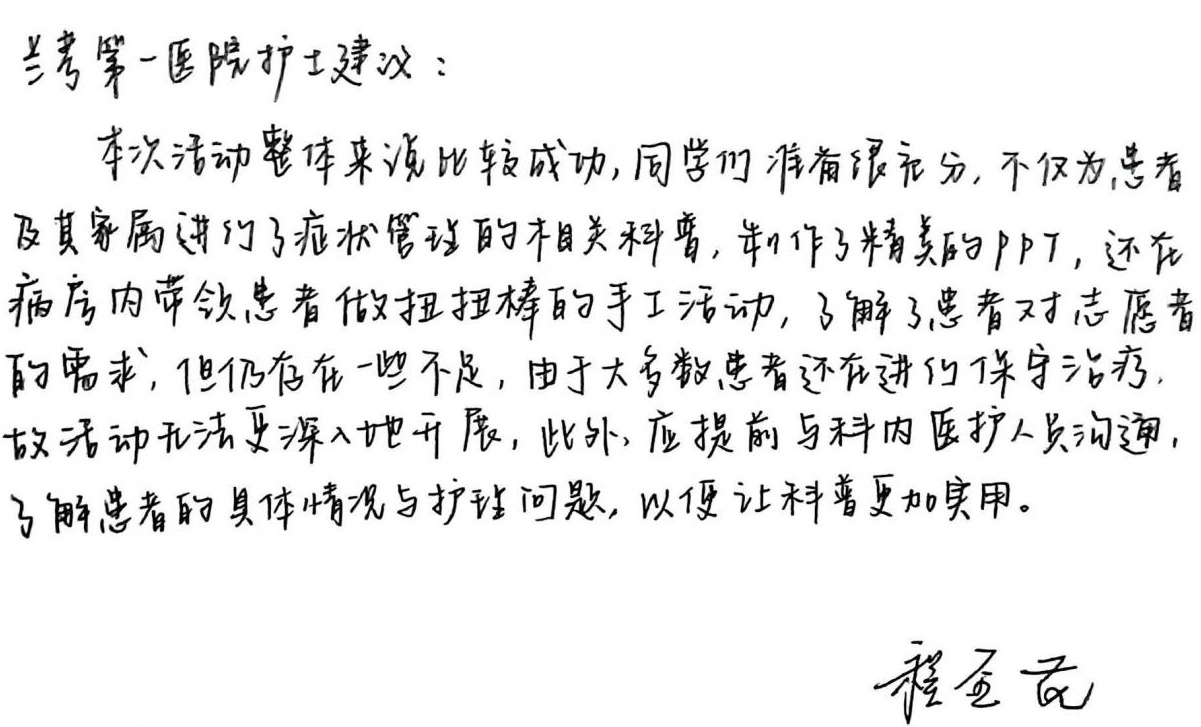 兰考第一医院护士建议：
本次活动整体来说比较成功，同学们准备很充分，不仅为患者
及其家属进行了症状管理的相关科普，制作了精美的PPT，还在
病房内带领患者做扭扭棒的手工活动，了解了患者对志愿者
的需求，但仍存在一些不足，由于大多数患者还在进行保守治疗，
故活动无法更深入地开展，此外，应提前与科内医护人员沟通，
了解患者的具体情况与护理问题，以便让科普更加实用。
程